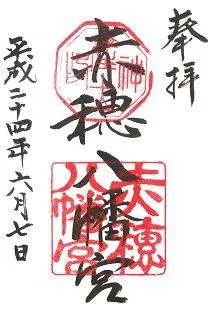 奉拝
赤穂八幡宮
平成二十四年六月七日
赤穂
八幡宮